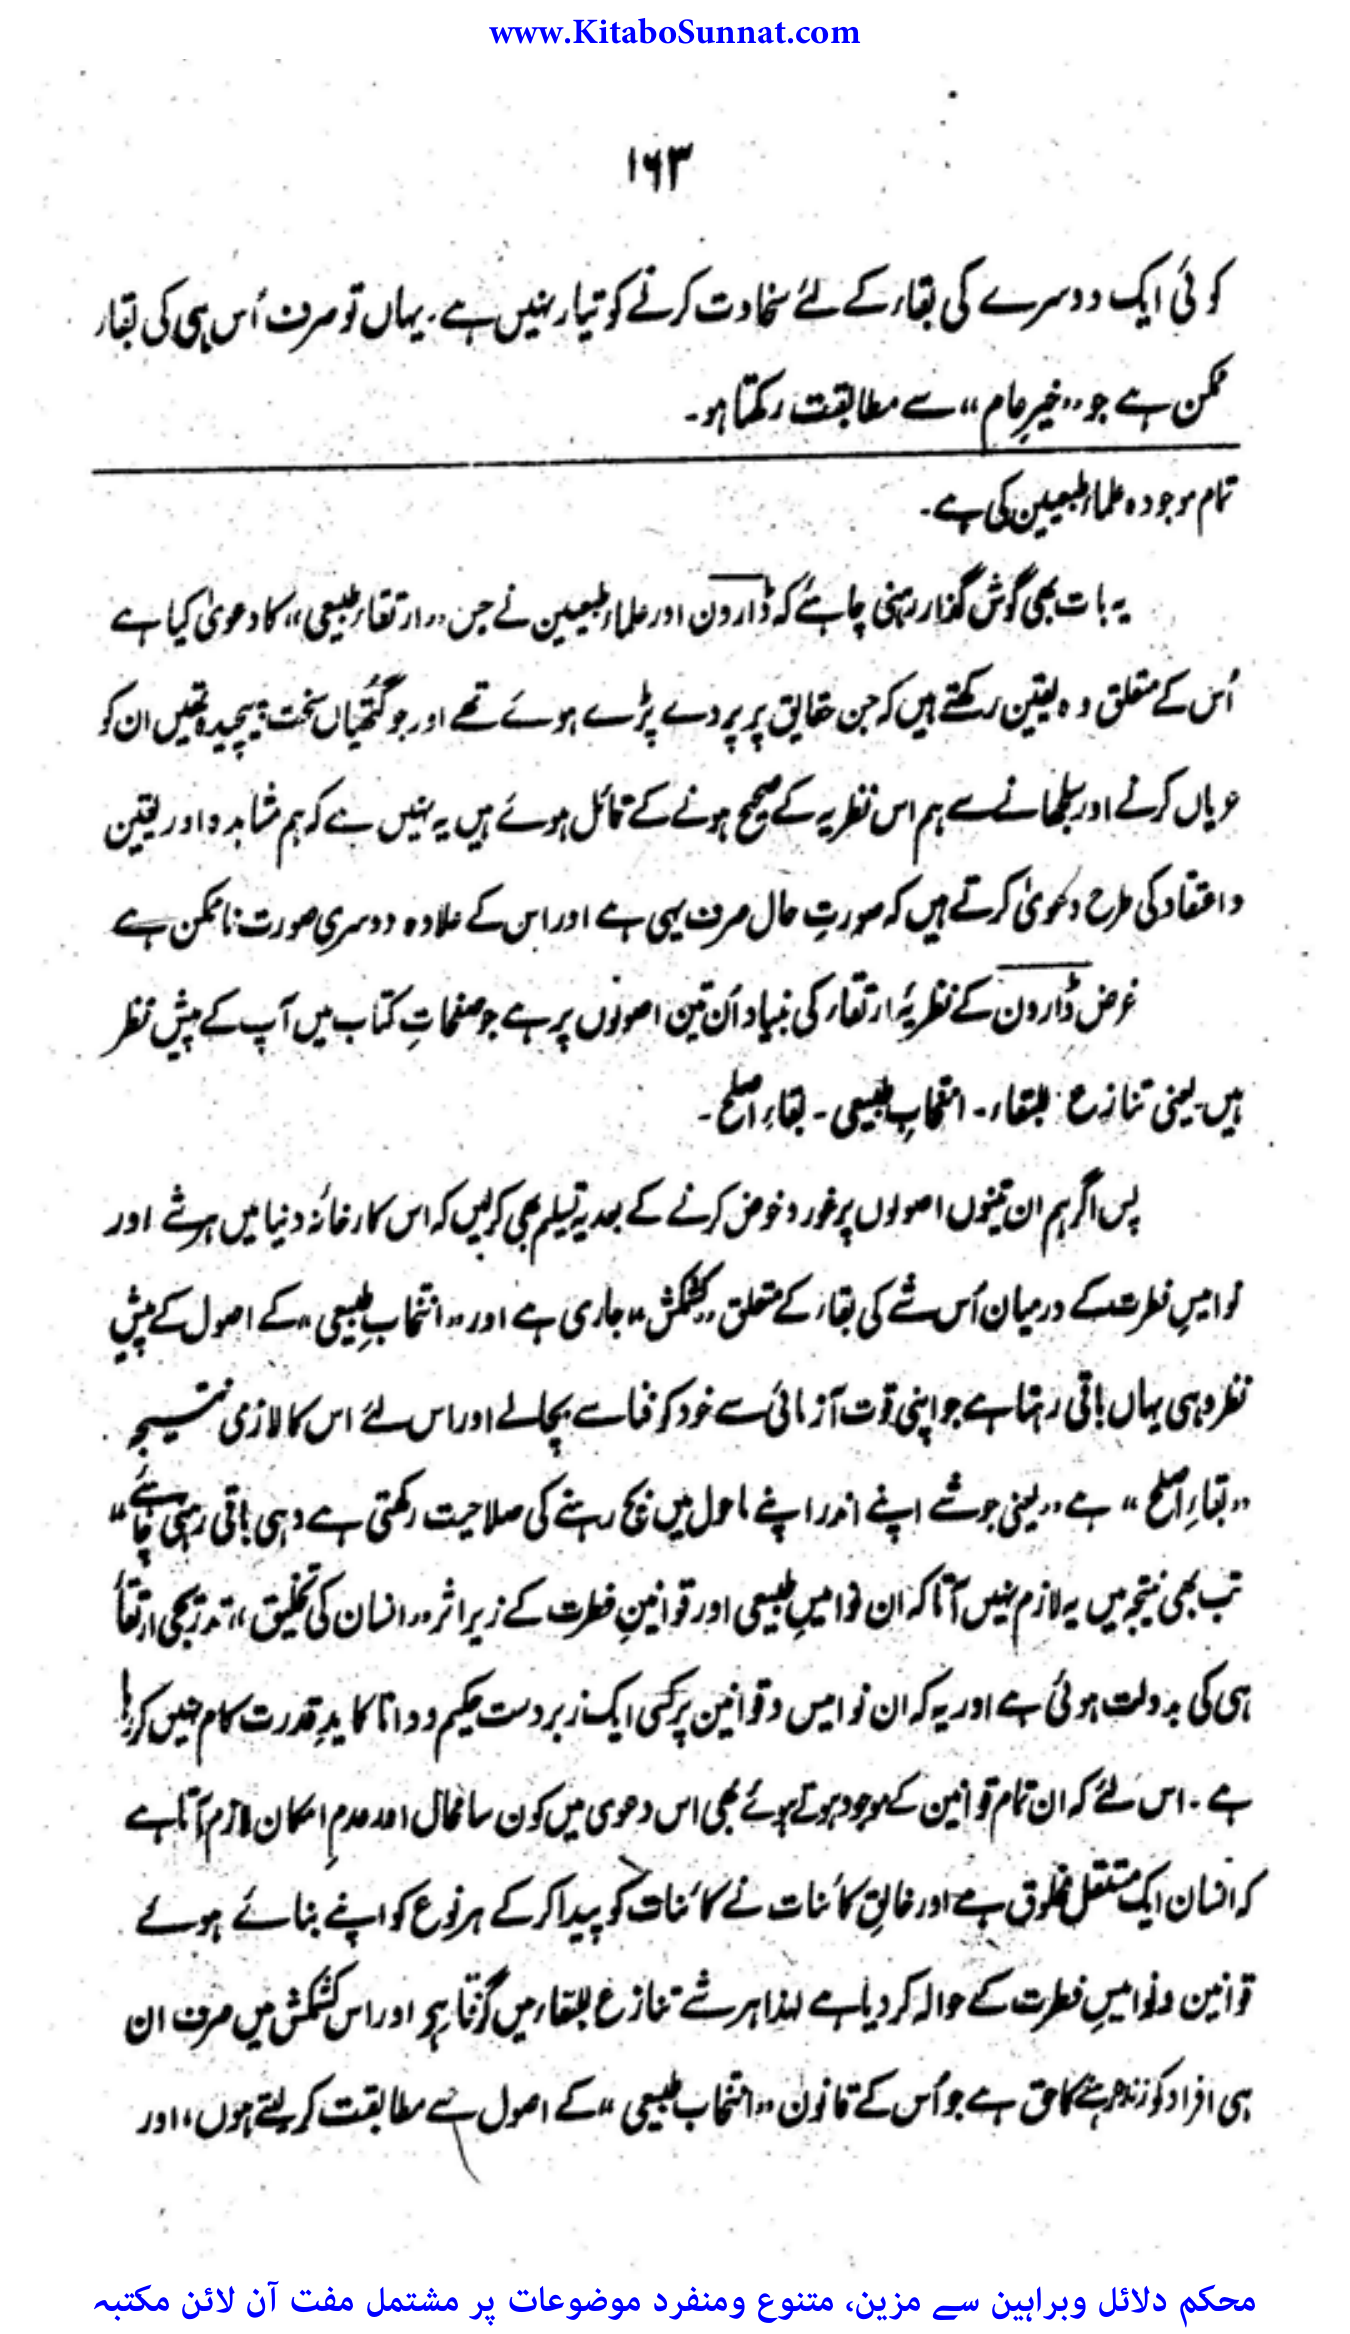 www.KitaboSunnat.com
۱۶۳
کوئی ایک دوسرے کی بقاء کے لئے سخاوت کرنے کو تیار نہیں ہے۔ یہاں تو صرف اُس ہی کی بقاء
ممکن ہے جو ”خیرِ عام“ سے مطابقت رکھتا ہو۔
تمام موجودہ علماء طبعیین کی ہے۔
یہ بات بھی گوش گذار رہنی چاہئے کہ ڈارون اور علماء طبعیین نے جس ”ارتقاء طبیعی“ کا دعویٰ کیا ہے
اُس کے متعلق وہ یقین رکھتے ہیں کہ جن حقایق پر پردے پڑے ہوئے تھے اور جو گتھیاں سخت پیچیدہ تھیں ان کو
عریاں کرنے اور سلجھانے سے ہم اس نظریہ کے صحیح ہونے کے قائل ہوئے ہیں یہ نہیں ہے کہ ہم مشاہدہ اور یقین
و اعتقاد کی طرح دعویٰ کرتے ہیں کہ صورتِ حال صرف یہی ہے اور اس کے علاوہ دوسری صورت ناممکن ہے
غرض ڈارون کے نظریۂ ارتقاء کی بنیاد اُن تین اصولوں پر ہے جو صفحاتِ کتاب میں آپ کے پیش نظر
ہیں۔ یعنی تنازع للبقاء۔ انتخابِ طبیعی۔ بقاءِ اصلح۔
پس اگر ہم ان تینوں اصولوں پر غور و خوض کرنے کے بعد یہ تسلیم بھی کر لیں کہ اس کارخانۂ دنیا میں ہر شے اور
نوامیسِ فطرت کے درمیان اُس شے کی بقاء کے متعلق ”کشمکش“ جاری ہے اور ”انتخابِ طبیعی“ کے اصول کے پیش
نظر وہی یہاں باقی رہتا ہے جو اپنی قوت آزمائی سے خود کو فنا سے بچالے اور اس لئے اس کا لازمی نتیجہ
”بقاءِ اصلح“ ہے ”یعنی جو شے اپنے اندر اپنے ماحول میں بچ رہنے کی صلاحیت رکھتی ہے وہی باقی رہنی چاہئے“
تب بھی نتیجہ میں یہ لازم نہیں آتا کہ ان نوامیسِ طبیعی اور قوانینِ فطرت کے زیر اثر ”انسان کی تخلیق“ تدریجی ارتقأ
ہی کی بدولت ہوئی ہے اور یہ کہ ان نوامیس و قوانین پر کسی ایک زبردست حکیم و دانا کا یدِ قدرت کام نہیں کر رہا
ہے۔ اس لئے کہ ان تمام قوانین کے موجود ہوتے ہوئے بھی اس دعویٰ میں کون سا محال اور عدمِ امکان لازم آتا ہے
کہ انسان ایک مستقل مخلوق ہے اور خالقِ کائنات نے کائنات کو پیدا کرکے ہر نوع کو اپنے بنائے ہوئے
قوانین و نوامیسِ فطرت کے حوالہ کر دیا ہے لہذا ہر شے تنازع للبقاء میں گرفتار ہے اور اس کشمکش میں صرف ان
ہی افراد کو زندہ رہنے کا حق ہے جو اُس کے قانون ”انتخاب طبیعی“ کے اصول سے مطابقت کر لیتے ہوں، اور
محکم دلائل وبراہین سے مزین، متنوع ومنفرد موضوعات پر مشتمل مفت آن لائن مکتبہ